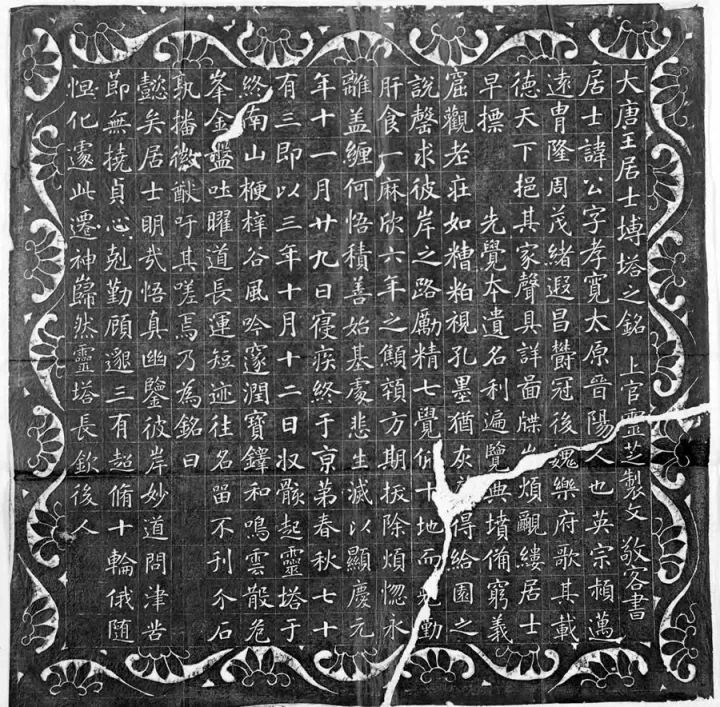 大唐王居士塼塔之銘 上官靈芝製文 敬客書
居士諱公字孝寬太原晉陽人也英宗穎邁
遠冑隆周茂緒遐昌欝冠後魏樂府歌其載
德天下挹其家聲具詳啚牒煩覼縷居士
早摽 先覺本遺名利遍覽典墳備窮義
窟觀老莊如糟粕視孔墨猶灰得給園之
說罄求彼岸之路勵精七覺俯十地而勤
肝食一麻欣六年之顦顇方期拔除煩惚永
離盖纏何悟積善始基處悲生滅以顯慶元
年十一月廿九日寑疾終于京第春秋七十
有三即以三年十月十二日収骸起靈塔于
終南山梗梓谷風吟邃澗寶鐸和鳴雲散危
峯金盤吐曜道長運短迹往名留不刊介石
孰播徽猷吁其嗟焉乃為銘曰
懿矣居士明哉悟真幽鑒彼岸妙道問津苦
節無撓貞心剋勤顧邈三有超脩十輪俄随
怛化遽此遷神巋然靈塔長欽後人